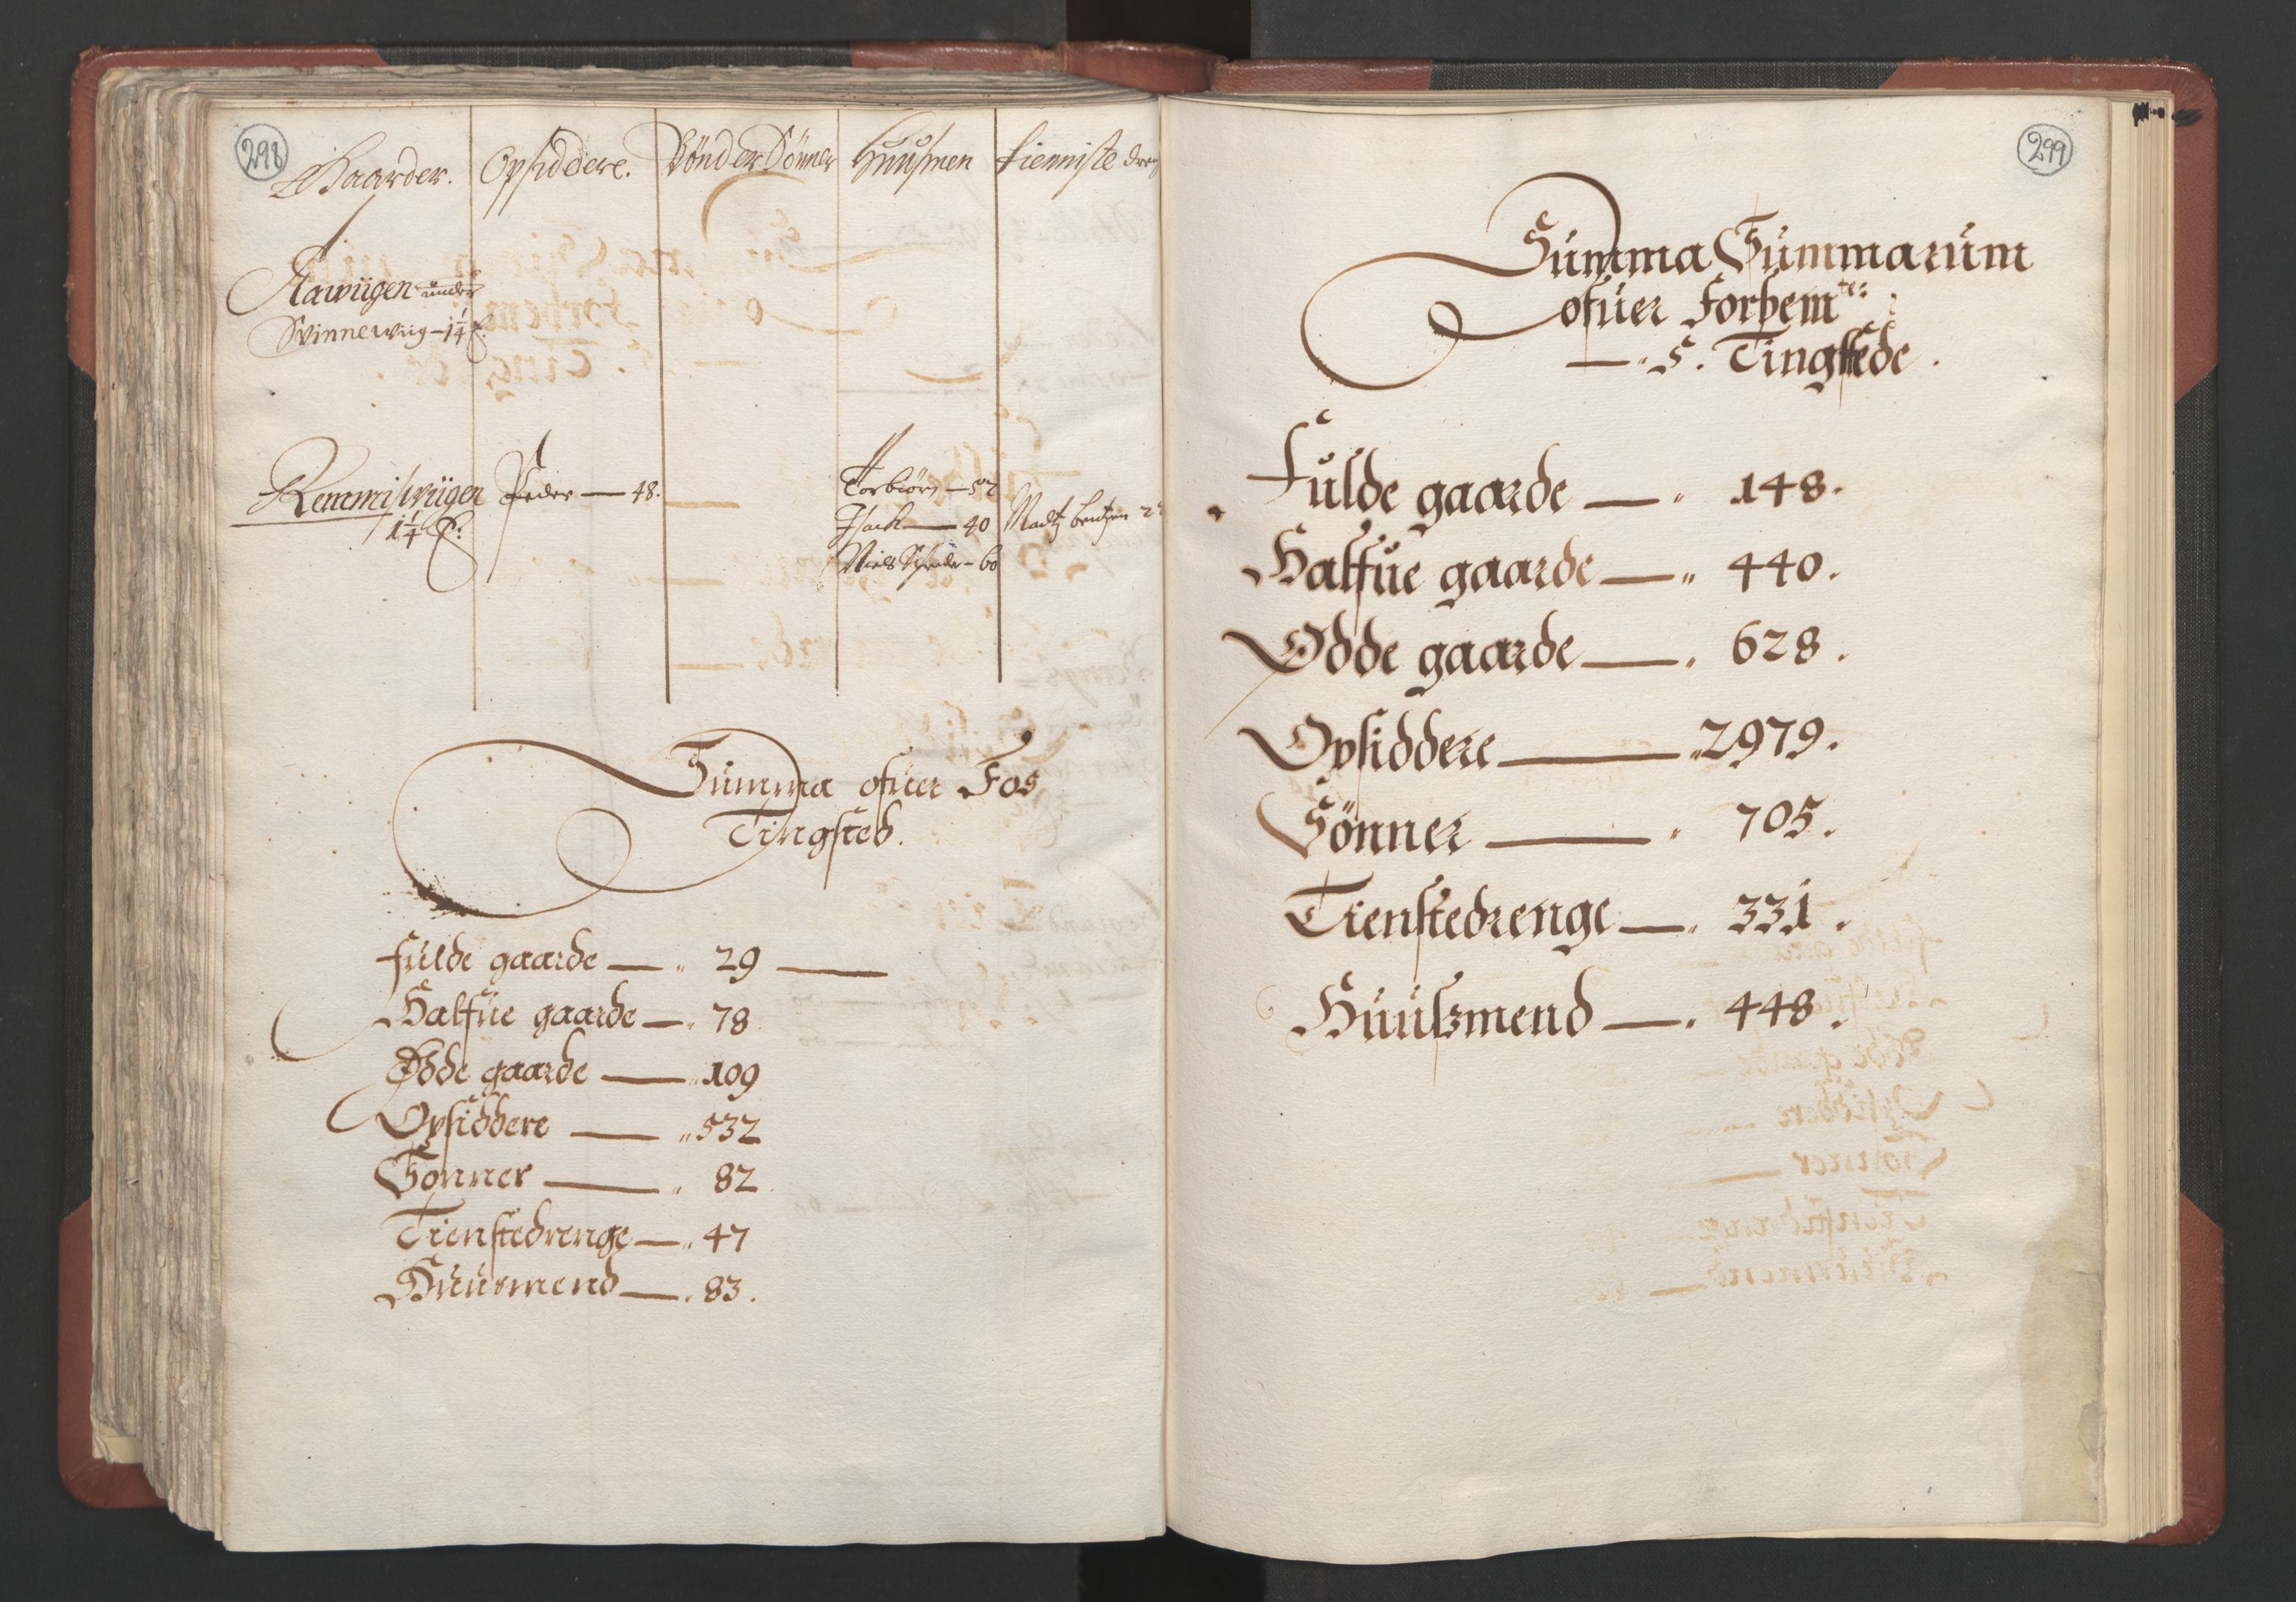 298
Gaarder. Opsiddere. Bönder Sönner Huusmen tienniste dreng
Aawiigen under
Svinnewiig - 1 1/4 
Remmiswiigen Peder — 48. — Torbiörn — 52
1 1/4 Isach — 40 Madtz 2
Niels — 60
Summa ofuer Fos
Tingsted.
fulde gaarde — „ 29 —
Halfue gaarde — „ 78
Ödde gaarde — „ 109
Opsiddere — „ 532
Sönner — „ 82
Tienstedrenge — „ 47
Huusmend — . 83.
299
Summa Summarum
ofuer forbem.te:
— „ 5. Tingstede.
Fulde gaarde — „ 148.
Halfue gaarde — „ 440.
Ödde gaarde — „ 628.
Opsiddere — „ 2979.
Sönner — „ 705.
Tienstedrenge — „ 331.
Huuszmend — . 448.